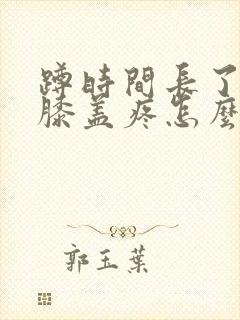 蹲時間長了
膝蓋疼怎麼
郭玉葉